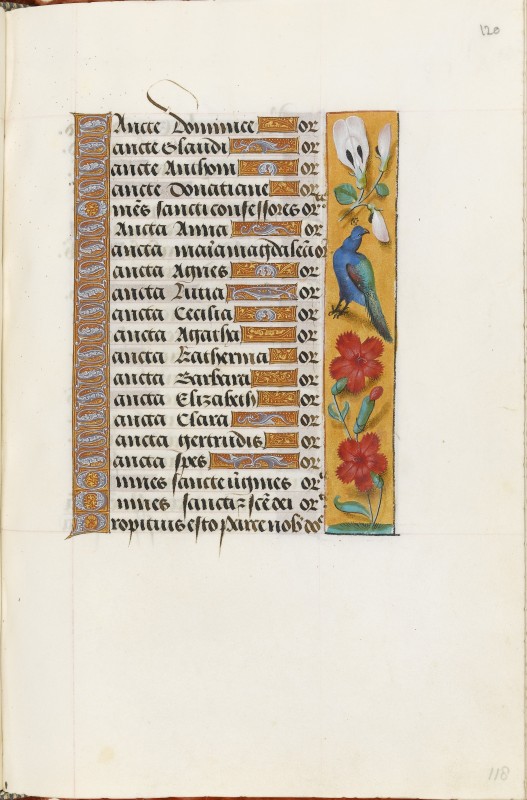 120
Sancte Dominice or
Sancte Glaudi or
Sancte Anthoni or
Sancte Donatiane or
Omēs sancti confessores orᵗᵉ
Sancta Anna or
Sancta maria magdalēa or
Sancta Agnes or
Sancta or
Sancta Cecilia or
Sancta Agatha or
Sancta Katherina or
Sancta Barbara or
Sancta Elizabeth or
Sancta Clara or
Sancta Gertrudis or
Sancta spes or
Omnes sancte v̄gines or
Omnes sancti ⁊ scē dei or
Propitius esto parce nob̄ do
118